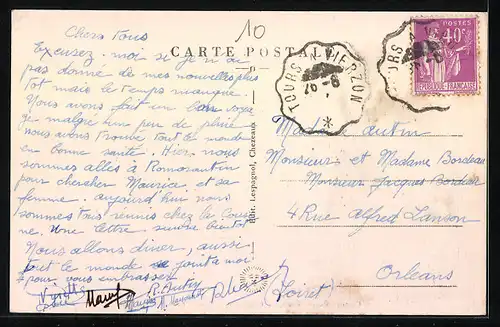 10
CARTE POSTALE
Chers tous
Excusez-moi si je n'ai
pas donné de mes nouvelles plus
tôt mais le temps manque.
Nous avons fait un bon voyage
malgré un peu de pluie
nous avons trouvé tout le monde
en bonne santé. Hier nous
sommes allés à Romorantin
pour chercher Maurice et sa
femme. aujourd'hui nous
sommes tous réunis chez les
Une lettre suivra bientôt
Nous allons diner, aussi
tout le monde se joint à moi
pour vous embrasser.
R. Autin
Edit. Lespagnol, Chezeaux
TOURS A VIERZON
26-6
POSTES
40c
RÉPUBLIQUE FRANÇAISE
Madame Autin
Monsieur et Madame Bordeau
Monsieur Jacques Bordeau
4 Rue Alfred Lanson
Orléans
(Loiret)